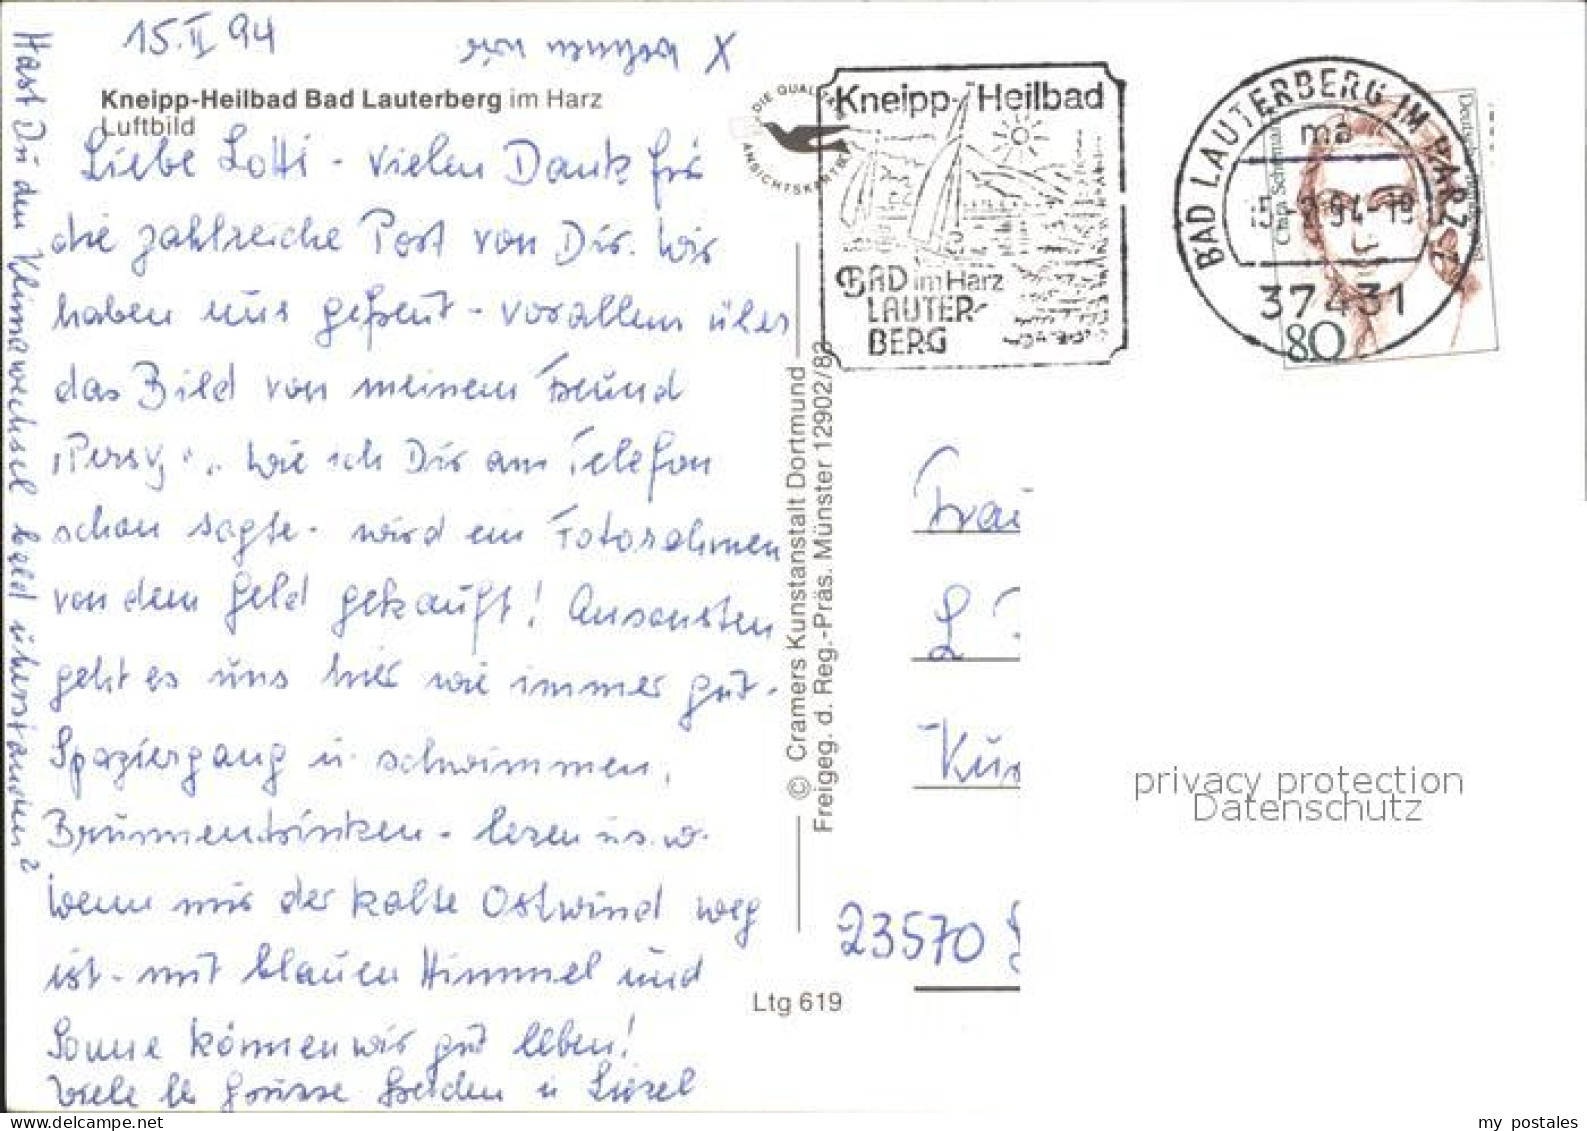 15.II 94
X wohnen wir
Kneipp-Heilbad Bad Lauterberg im Harz
Luftbild
Liebe Lotti - vielen Dank für
die zahlreiche Post von Dir. Wir
haben uns gefreut - vorallem über
das Bild von meinem Freund
"Persy". wie ich Dir am Telefon
schon sagte - wird ein Fotorahmen
von dem Geld gekauft! Ansonsten
geht es uns hier wie immer gut -
Spaziergang u. schwimmen,
Brunnentrinken - lesen u.s.w.
Wenn nur der kalte Ostwind weg
ist - mit blauen Himmel und
Sonne können wir gut leben!
Viele lb Grüsse Frieden u Liesel
Hast Du den Klimawechsel bald überstanden?
DIE QUALITÄTS
ANSICHTSKARTE
Kneipp-Heilbad
BAD im Harz
LAUTER-
BERG
BAD LAUTERBERG IM HARZ
ma
15.-2.94-19
37431
Clara Schumann
Deutsche Bundespost
80
© Cramers Kunstanstalt Dortmund
Freigeg. d. Reg.-Präs. Münster 12902/83
Ltg 619
Frau
L
Kur
23570
privacy protection
Datenschutz
my postales